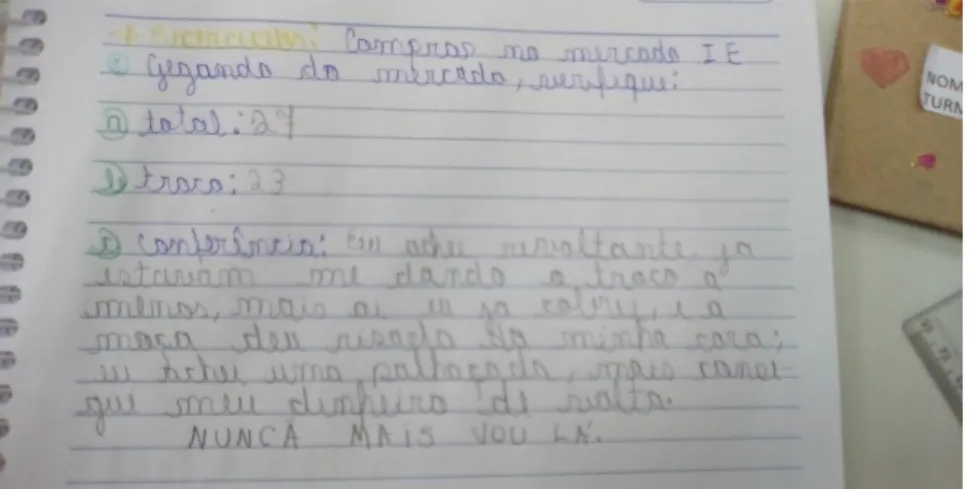 Exercícios: Compras no mercado I E
Gegando do mercado, verfique:
a) total: 27
b) troco: 23
c) conferência: Eu achei revoltante, ja
estavam me dando o troco a
menos, mais ai eu ja cobrei, e a
moça deu risada da minha cara;
eu achei uma palhaçada, mais conse-
gui meu dinheiro de volta.
NUNCA MAIS VOU LÁ.
NOM
TURM